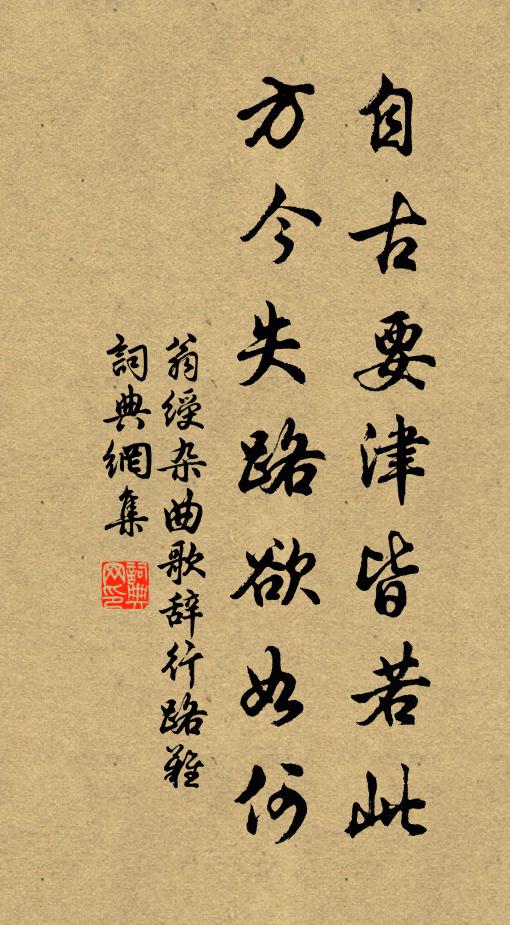 自古要津皆若此
方今失路欲如何
翁綬杂曲歌辞行路難
詞典網集
詞典网印